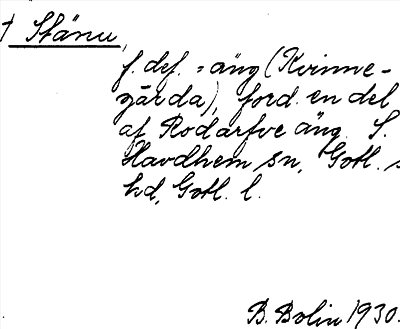 † Stänu,
f. def. = äng (Kvinne-
gärda), ford. en del
af Rodarfve äng. S.
Havdhem sn, Gotl. s.
hd, Gotl. l.
B. Bolin 1930.